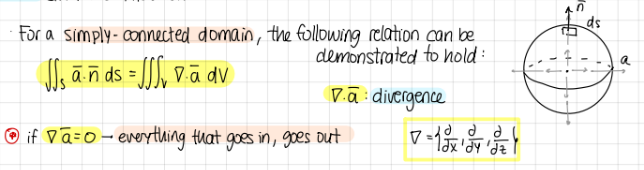 · For a simply-connected domain, the following relation can be
demonstrated to hold:
∬ₛ ā.n̄ ds = ∭ᵥ ∇.ā dV
∇.ā : divergence
if ∇ā=0 → everything that goes in, goes out
∇ = {∂/∂x, ∂/∂y, ∂/∂z}
n̄
ds
a